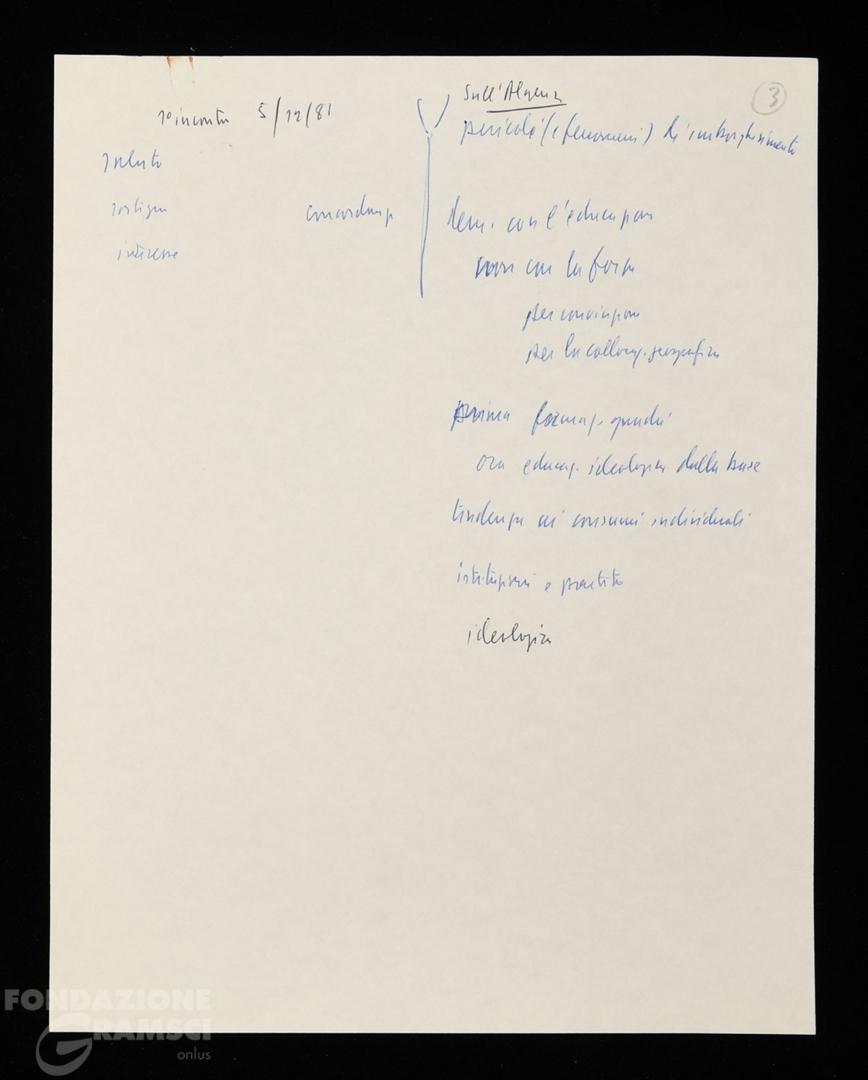 3
1º incontro 5/12/81
saluto
sostegno
interesse
concordanza
Sull'Algeria
pericoli (e fenomeni) di imborghesimento
Dem. con l'educazione
non con la forza
per convinzione
per la collocaz. geografica
prima formaz. quadri
ora educaz. ideologica dalla base
tendenza ai consumi individuali
istituzioni e partito
ideologia
FONDAZIONE
GRAMSCI
onlus